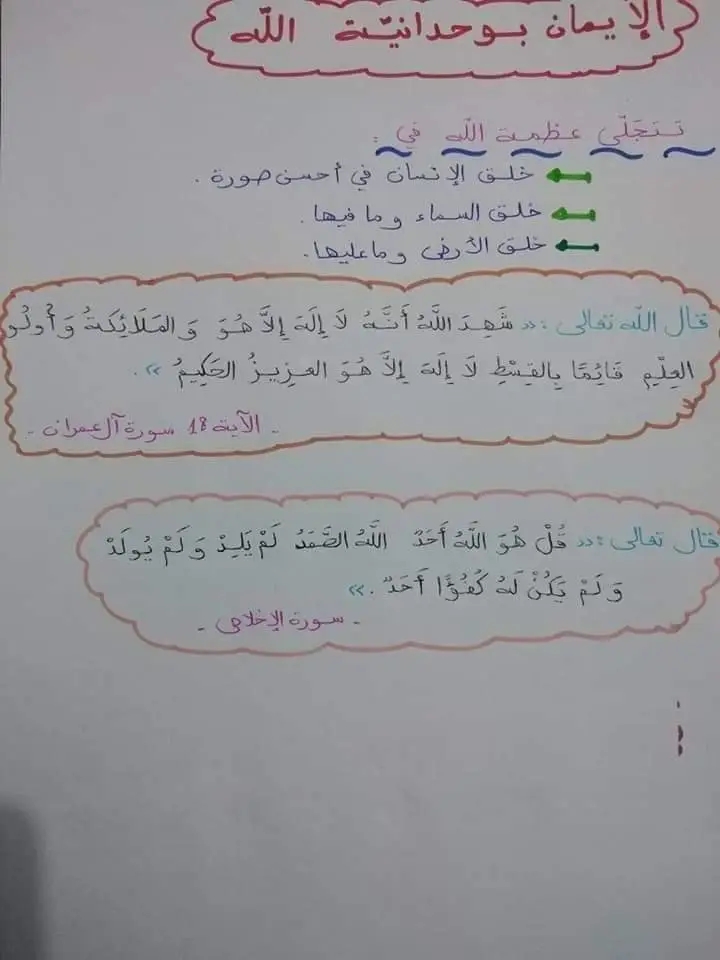 الإيمان بوحدانيّة اللّه
تَتَجَلَّى عظمة اللّه في :
خلق الإنسان في أحسن صورة .
خلق السماء وما فيها .
خلق الأرض وما عليها .
قال اللّه تعالى : « شَهِدَ اللَّهُ أَنَّهُ لَا إِلَهَ إِلَّا هُوَ وَالمَلَائِكَةُ وَأُولُو
العِلْمِ قَائِمًا بِالقِسْطِ لَا إِلَهَ إِلَّا هُوَ العزِيزُ الحَكِيمُ » .
- الآية 18 سورة آل عمران -
قال تعالى : « قُلْ هُوَ اللَّهُ أَحَدٌ اللَّهُ الصَّمَدُ لَمْ يَلِدْ وَلَمْ يُولَدْ
وَلَمْ يَكُنْ لَهُ كُفُؤًا أَحَدٌ . »
- سورة الإخلاص -